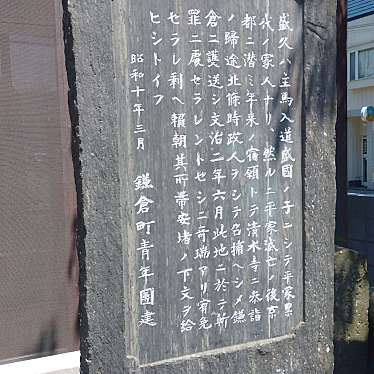 盛久ハ主馬入道盛國ノ子ニシテ平家累
代ノ家人ナリ、然ルニ平家滅亡ノ後京
都ニ潜ミ年来ノ宿願トテ清水寺ニ参詣
ノ歸途北條時政人ヲシテ召捕ヘシメ鎌
倉ニ護送シ文治二年六月此地ニ於テ斬
罪ニ處セラレントセシニ奇瑞アリ宥免
セラレ剰ヘ頼朝其所帯安堵ノ下文ヲ給
ヒシトイフ
昭和十年三月 鎌倉町青年團建